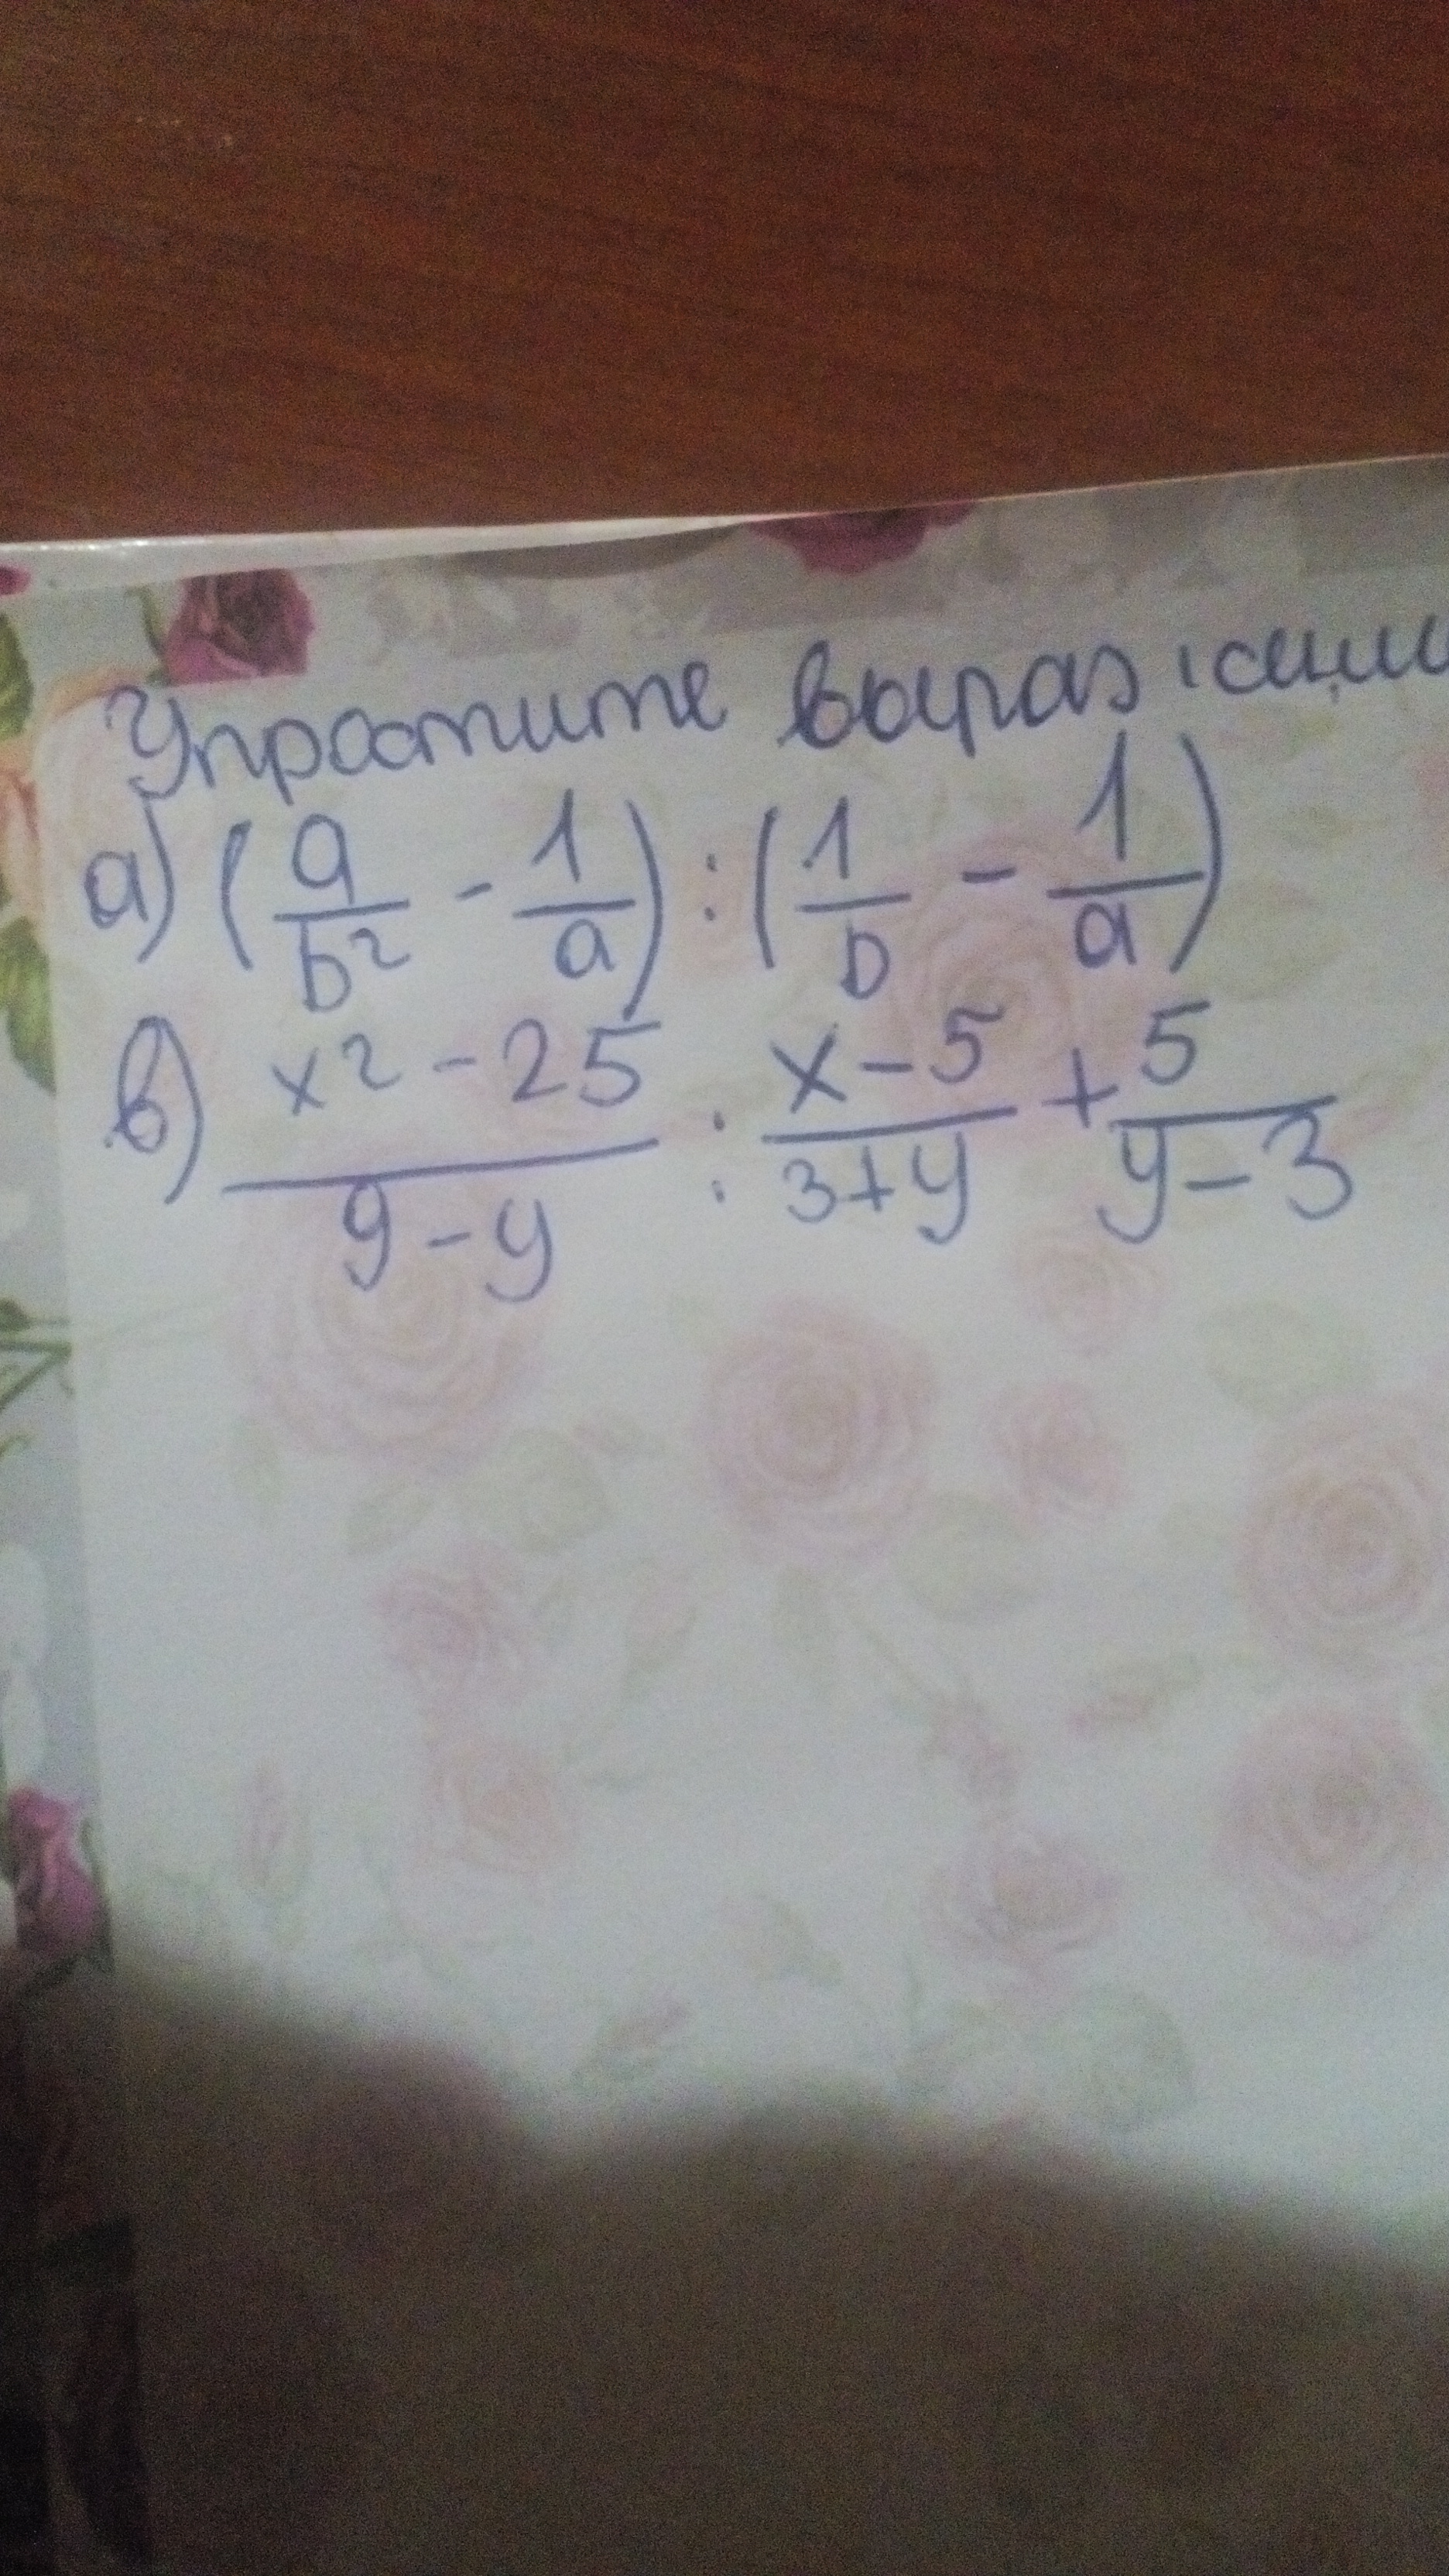 Упростите выражени
а) (a/b² - 1/a) : (1/b - 1/a)
в) x² - 25 / 9 - y : x - 5 / 3 + y + 5 / y - 3